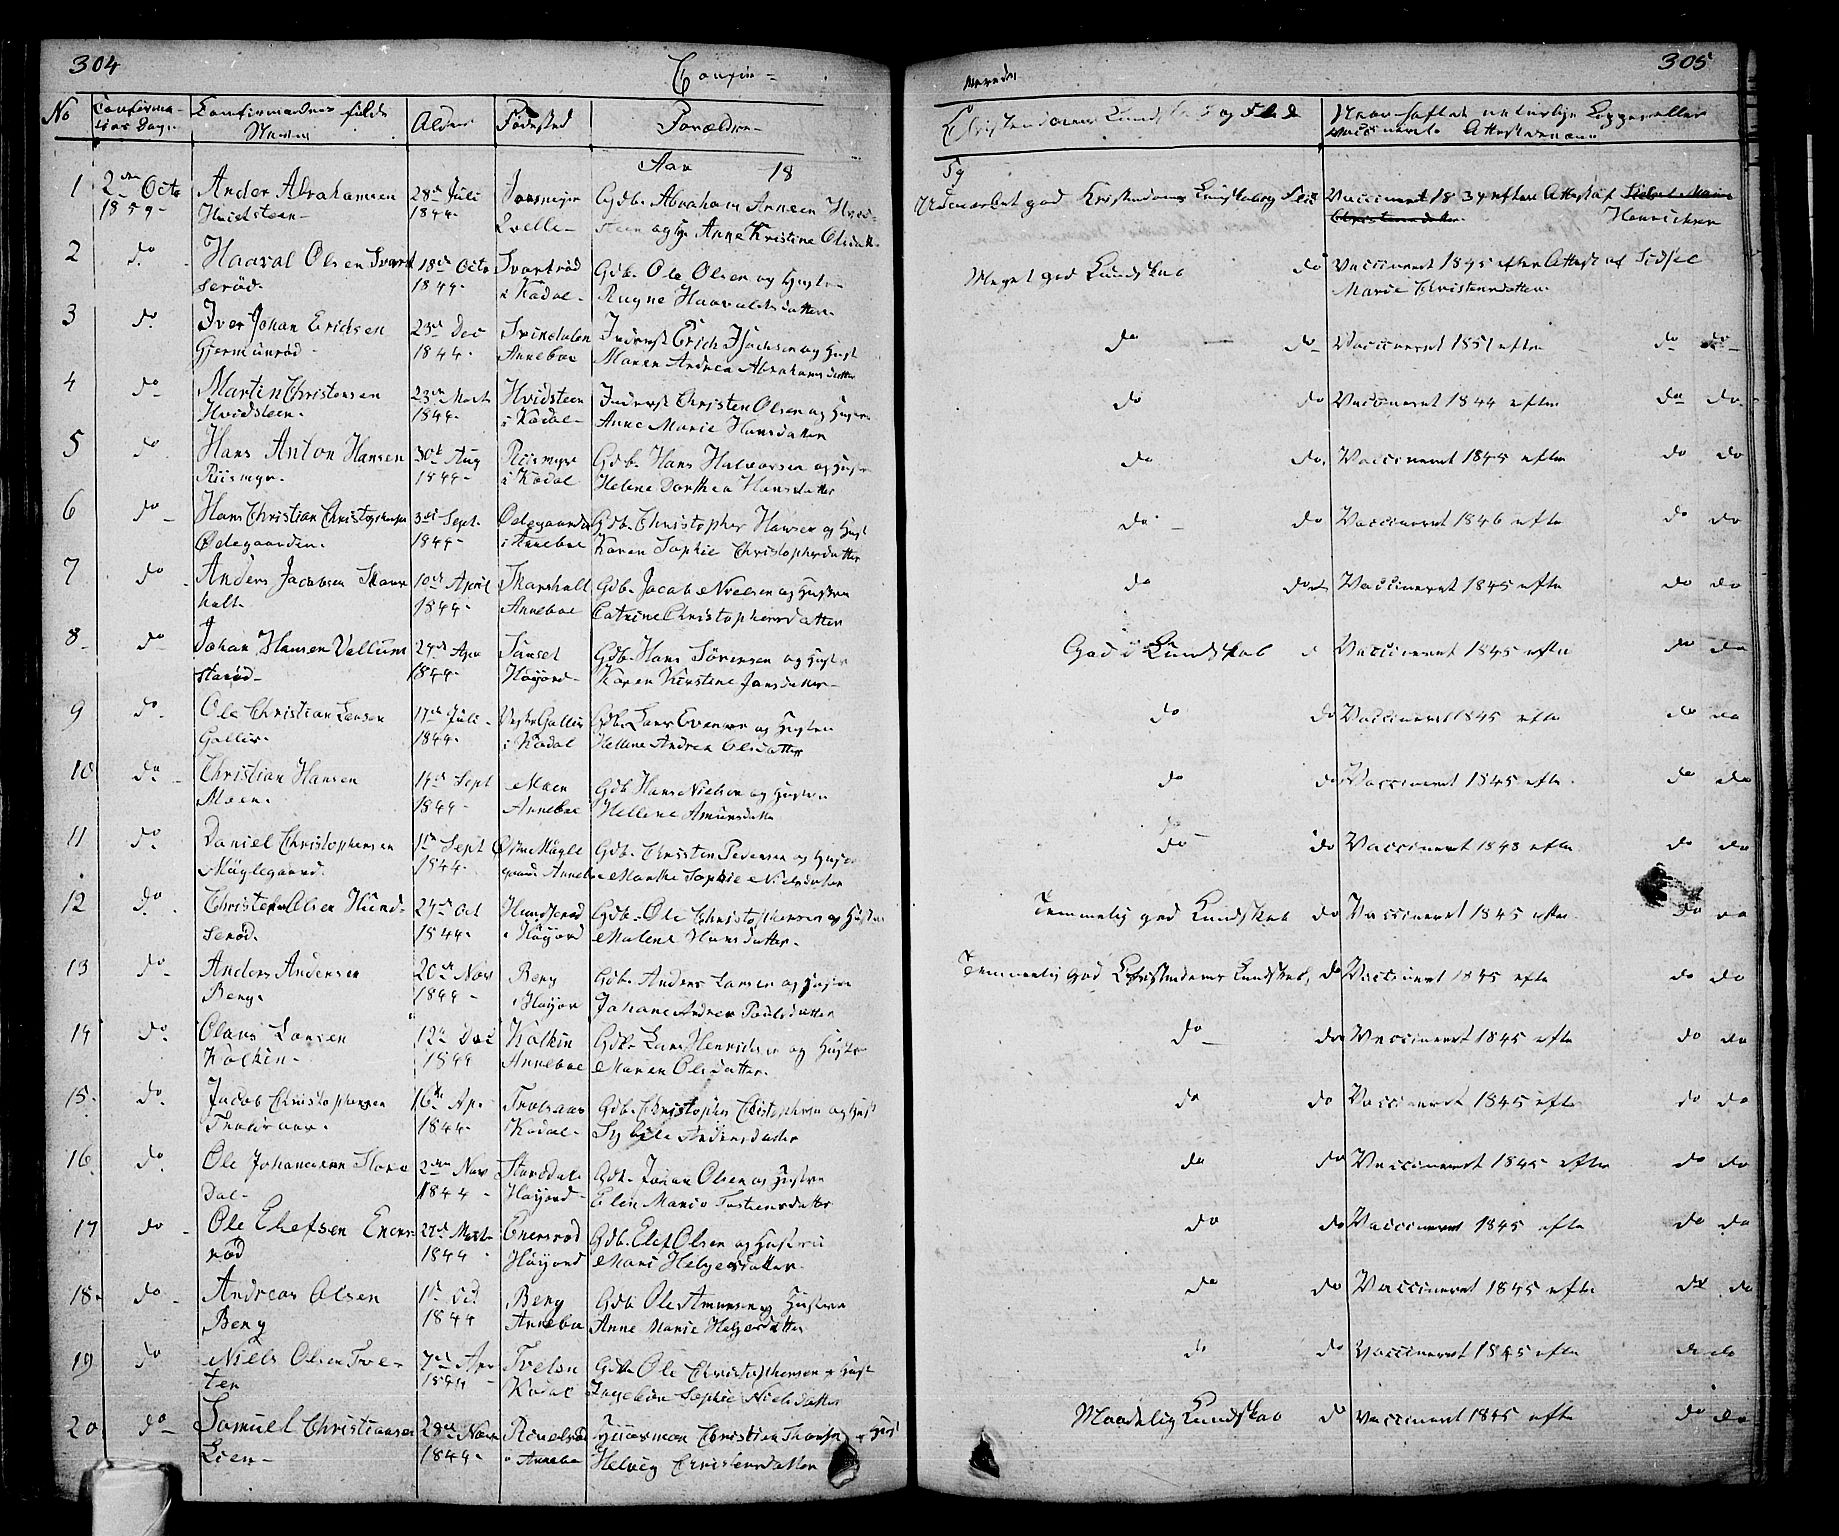 304
Confir-
No Confirma- Confirmandens fulde Alder Fødested Forældre
tions Dag Navn
Aar 18
1 2den Octo Ander Abrahamsen 28de Juli Gdb. Abraham
1859 Hvidsteen 1844 Qvelle og H. Anne Kristine Olsdatt.
2 do Haaval Olsen Svart 18de Octo Svartrød Gdb. Ole Olsen og Hustru
serød 1844 i Kodal Rugne Haavaldsdatter
3 do Iver Johan Erichsen 23de Dec Svindalen Inderst Erich og Hust
Gjermunrød 1844 Anneboe Maren Andrea Abrahamsdatter
4 do Martin Christensen 23de Mart Hvidsteen Inderst Christen Olsen og Hustru
Hvidsteen 1844 i Kodal Anne Marie Hansdatter
5 do Hans Anton Hansen 30te Aug Riismyr Gdb. Hans Halvorsen og Hustru
Riismyr 1844 i Kodal Helene Dorthea Hansdatter
6 do Hans Christian Christophersen 3die Sept. Ødegaarden Gdb. Christopher Hansen og Hust
Ødegaarden 1844 i Anneboe Karen Sophie Christophersdatter
7 do Anders Jacobsen Skars 10de April Skarsholt Gdb. Jacob Nielsen og Hustru
holt 1844 Anneboe Catrine Christophersdatter
8 do Johan Hansen Vellum 24de Apr Gdb. Hans Sørensen og Hustr
starød 1844 Høyjord Karen Kirstine Jansdatter
9 do Ole Christian Larsen 17de Juli Vestre Gallis Gdb. Lars Evensen og Hustru
Gallis 1844 i Kodal Hellene Andrea Olsdatter
10 do Christian Hansen 14de Sept Moen Gdb Hans Nielsen og Hustru
Moen 1844 Anneboe Hellene Amunsdatter
11 do Daniel Christophersen 11te Sept Østre Møgle Gdb. Christen Pedersen og Hustru
Møglegaard 1844 gaard Anneboe Marthe Sophie Nielsdatter
12 do Christen Olsen Hund- 24de Oct Hundserød Gdb. Ole Christophersen og Hustru
serød 1844 Høyjord Malene Hansdatter
13 do Anders Andersen 20de Nov Berg Gdb. Anders Larsen og Hustru
Berg 1844 Høyjor Johane Andrea Poulsdatter
14 do Olaus Larsen 12te Dec Kolkin Gdb. Lars Henrichsen og Hustru
Kolkin 1844 Anneboe Maren Olsdatter
15 do Jacob Christophersen 16de Apr Trolsaas Gdb. Christopher Christophersen og Hust
1844 Kodal Sybile Andersdatter
16 do Ole Johannesen Stora 2den Nov Storedal Gdb. Johan Olsen og Hustru
Dal 1844 Høyjord Elen Maria
17 do Ole Elefsen Eners- 20de Marts Enersrød Gdb. Elef Olsen og Hustru
rød 1844 Høyjord Mari Helgesdatter
18 do Andreas Olsen 1ste Oct. Berg Gdb. Ole Amunsen og Hustru
Berg 1844 Anneboe Anne Marie Helgesdatter
19 do Niels Olsen Tve- 7de Apr Tveten Gdb. Ole Christophersen og Hust
ten 1844 Kodal Ingeborg Sophie Nielsdatter
20 do Samuel Christiansen 28de Nov Huusman Christien og Hust
Lien 1844 Anneboe Helvig Christensdatter
305
merede
Christendoms Kundskab og Flid Naar haft de naturlige Kopper eller
vaccineret. Attestens
59
Udmærket god Kristendoms Kundskab og Flid Vaccineret 1834 efter Attest af
Henrichsen
Meget god Kundskab do Vaccineret 1845 efter Attest af Sidsel
Marie Christensdatter
do do Vaccineret 1851 efter do do
do do Vaccineret 1844 efter do do
do do Vaccineret 1845 efter do do
do do Vaccineret 1846 efter do do
do do Vaccineret 1845 efter do do
God Kundskab Vaccineret 1845 efter do do
do do Vaccineret 1845 efter do do
do do Vaccineret 1845 efter do do
do do Vaccineret 1848 efter do do
Temmelig god Kundskab do Vaccineret 1845 efter do do
Temmelig god Christendoms Kundskab, do Vaccineret 1845 efter do do
do do Vaccineret 1845 efter do do
do do Vaccineret 1845 efter do do
do do Vaccineret 1845 efter do do
do do Vaccineret 1845 efter do do
do do Vaccineret 1845 efter do do
do do Vaccineret 1845 efter do do
Maadelig Kundskab do Vaccineret 1845 efter do do